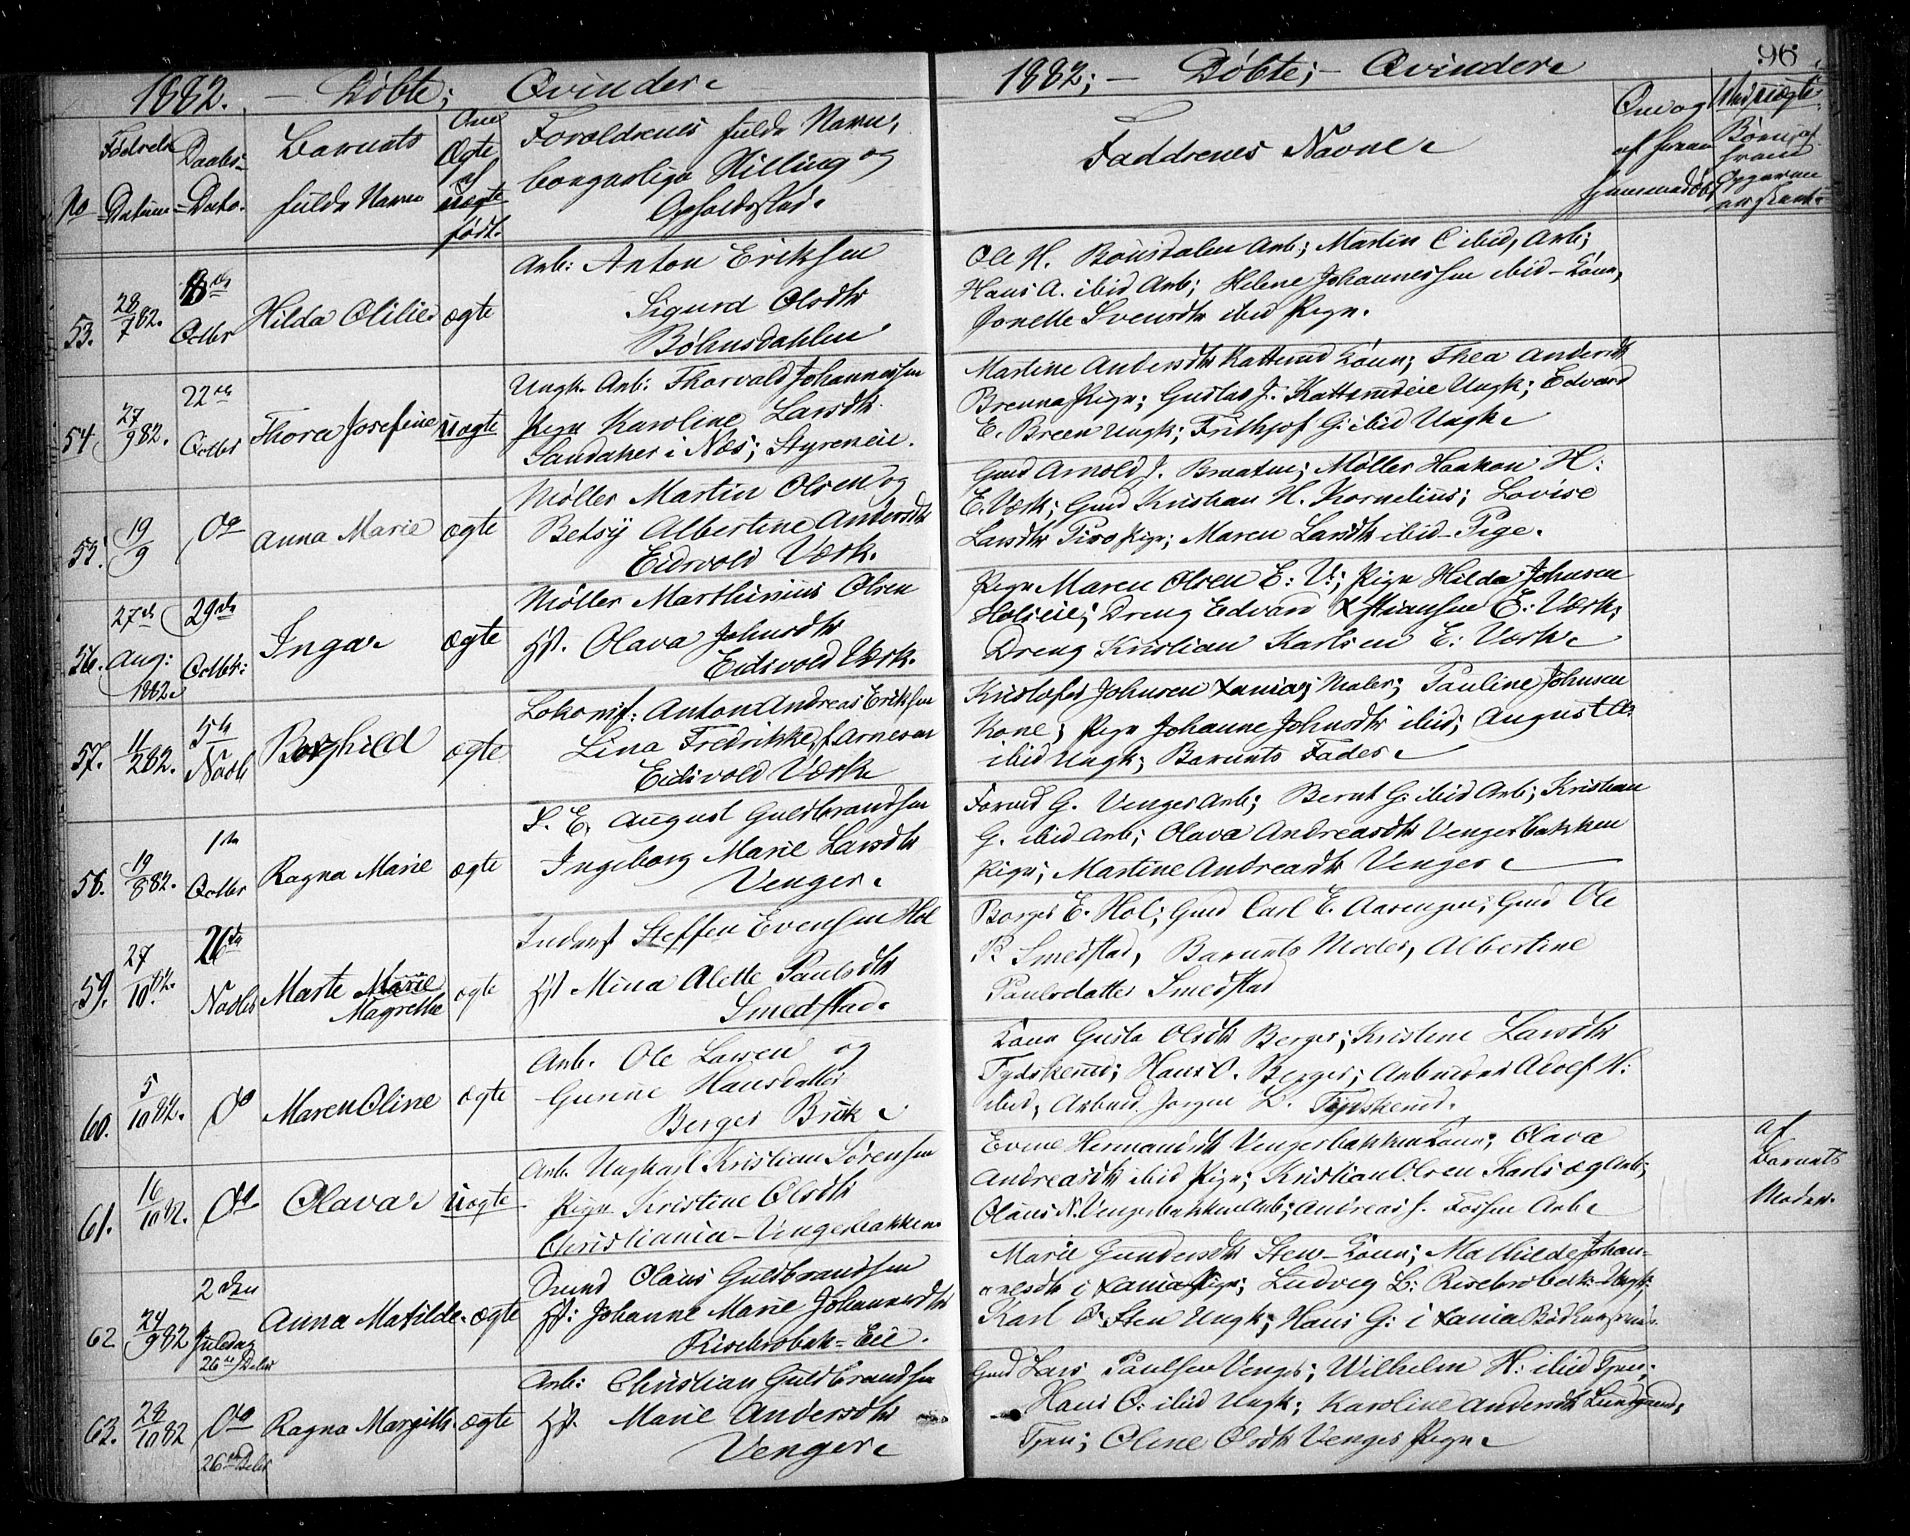 1882. — Døbte; Qvinder
No Fødsels Datum Daabs- Dato. Barnets fulde Navn Om Ægte af uægte født. Forældrenes fulde Navn, borgerlige Stilling og Opholdssted
53. 28/7 82. Octbr Hilda Otilie ægte Arb: Anton Eriksen
Sigurd Olsdtr
Bøhnsdahlen
54. 27/9 82. 22de Octbr Thora Josefine uægte Ungk. Arb: Thorvald Johannessen
Pige Karoline Larsdtr
Sandaker i Næs; Styreneie.
55. 19/9 Do Anna Marie ægte Møller Martin Olsen og
Betsy Albertine Andersdtr
Eidsvold Værk.
56. 27de Aug: 1882. 29de Octbr: Inga ægte Møller Marthinius Olsen
Hst. Olava Johnsdtr
Eidsvold Værk.
57. 11/2 82. 5te Novbr Borghild ægte Lokomf: Anton Andreas Eriksen
Lina Fredrikke f. Arnesen
Eidsvold Værk
58. 19/8 82. 1ste Octbr Ragna Marie ægte S. E. August Guldbrandsen
Ingeborg Marie Larsdtr
Venger
59. 27/10 82. 26de Novbr Marte Marie
Magrethe ægte Inderst Steffen Evensen Hol
Hst Mina Alette Paulsdtr
Smedstad
60. 5/10 82. Do Maren Oline ægte Arb. Ole Larsen og
Gunine Hansdatter
Berger Bruk
61. 16/10 82. Do Olava uægte Arb. Ungkarl Kristian Sørensen
Pige Kristine Olsdtr
Christiania – Vengerbakken
62 24/9 82 2den Juledag 26de Decbr Anna Matilde ægte Brund Olaus Guldbrandsen
Hst: Johanne Marie Johannesdtr
Risebrobak = Eie.
63. 28/10 82 Do 26de Decbr Ragna Margith ægte Arb: Christian Guldbrandsen
Hst. Marie Andersdtr
Venger
1882; — Døbte; — Qvinder
96
Faddrenes Navne Om og af hvem hjemmedøbt Ved uægte Børn; af hvem Opgaven
Ole H. Bønsdalen Arb; Martin C ibid, Arb;
Hans A. ibid Arb; Helene Johannessen ibid – Kone,
Jonette Svendsdtr ibid Pige.
Martine Andersdtr Katterud Kone; Thea Andersdtr
Brenna Pige; Gustav J. Katterudeie Ungk; Edvard
E. Breen Ungk; Frithjof G. ibid Ungk
Gmd Arnold J. Braaten; Møller Haakon H:
E. Værk; Gmd Kristian H. Kornelius; Lovise
Larsdtr Pige; Maren Larsdtr ibid – Pige.
Pige Maren Olsen E: V:; Pige Hilda Johnsen
Holseie; Dreng Edvard Xstiansen E: Værk;
Dreng Kristian Karlsen E: Værk
Kristofer Johnsen Xania; Maler; Pauline Johnsen
Kone; Pige Johanne Johnsdtr ibid; August A.
ibid Ungk; Barnets Fader
G. Venger Arb; Bernt G. ibid Arb; Kristian
G. ibid Arb; Olava Andreasdtr Vengerbakken
Pige; Martine Andreasdtr Venger
Borger E. Hol; Gmd Carl E. Aarengen; Gmd Ole
P. Smedstad, Barnets Moder, Albertine
Paulsdatter Smedstad
Kone Gusta Olsdtr Berger; Kristine Larsdtr
Tydskerud; Hans O. Berger; Arbeider Adolf H.
ibid, Arbeid. Jørgen L. Tydskerud.
Evine Hermansdtr Vengerbakken Kone; Olava
Andreasdtr ibid Pige; Kristian Olsen Arb;
Olaus N. Vengerbakken Arb; Andreas J. Fossen Arb
af Barnets Moder.
Marie Gundersdtr Sten – Kone; Mathilde Johan-
nesdtr i Xania Pige; Ludvig L: Risebrobak – Ungk;
Karl O. Sten Ungk; Hans G: i Xania
Gmd Lars Paulsen Venger; Wilhelm H: ibid Tjen;
Hans O. ibid Ungk; Karoline Andersdtr
Tjen; Oline Olsdtr Venger Pige